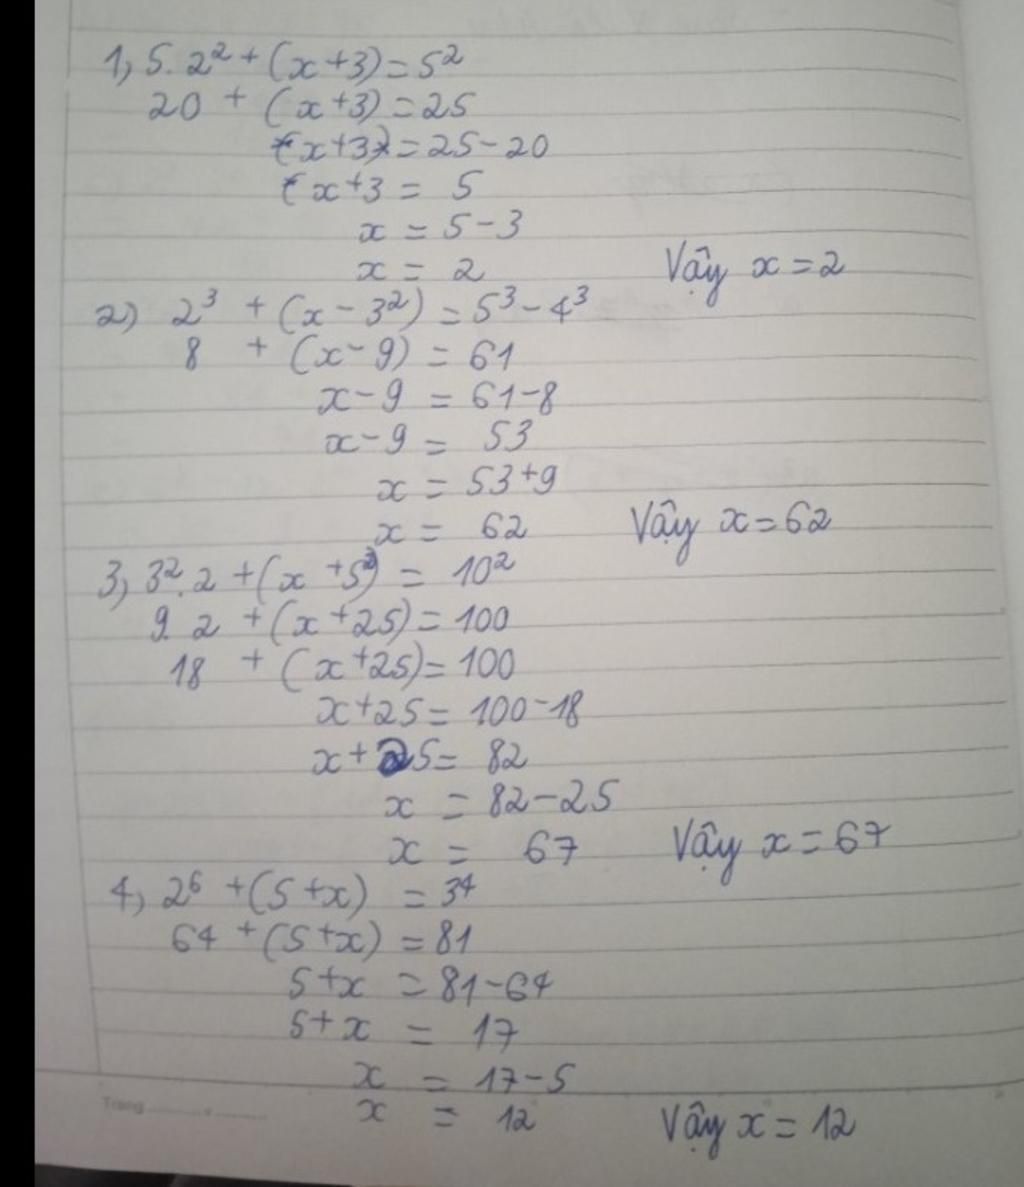 1, 5. 2² + (x+3) = 5²
20 + (x+3) = 25
x+3 = 25-20
x+3 = 5
x = 5-3
x = 2 Vậy x = 2
2) 2³ + (x-3²) = 5³-4³
8 + (x-9) = 61
x-9 = 61-8
x-9 = 53
x = 53+9
x = 62 Vậy x = 62
3, 3². 2 + (x + 5²) = 10²
9. 2 + (x+25) = 100
18 + (x+25) = 100
x+25 = 100-18
x+25 = 82
x = 82-25
x = 67 Vậy x = 67
4, 2⁶ + (5+x) = 3⁴
64 + (5+x) = 81
5+x = 81-64
5+x = 17
x = 17-5
Trang
x = 12 Vậy x = 12